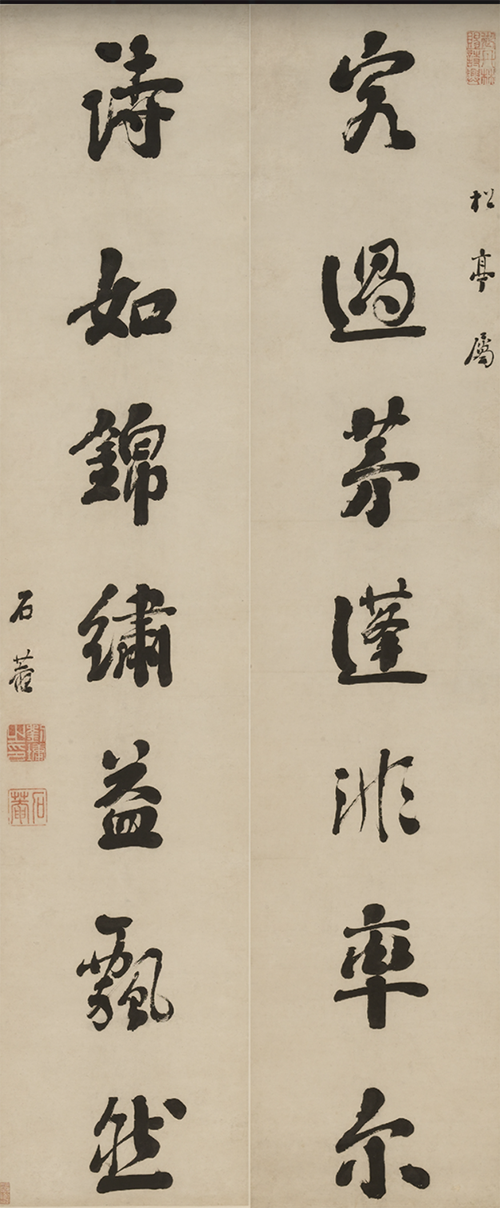 松亭屬
客過茅蓬非率尔
詩如錦繡益飄然
石菴
劉墉之印
石菴